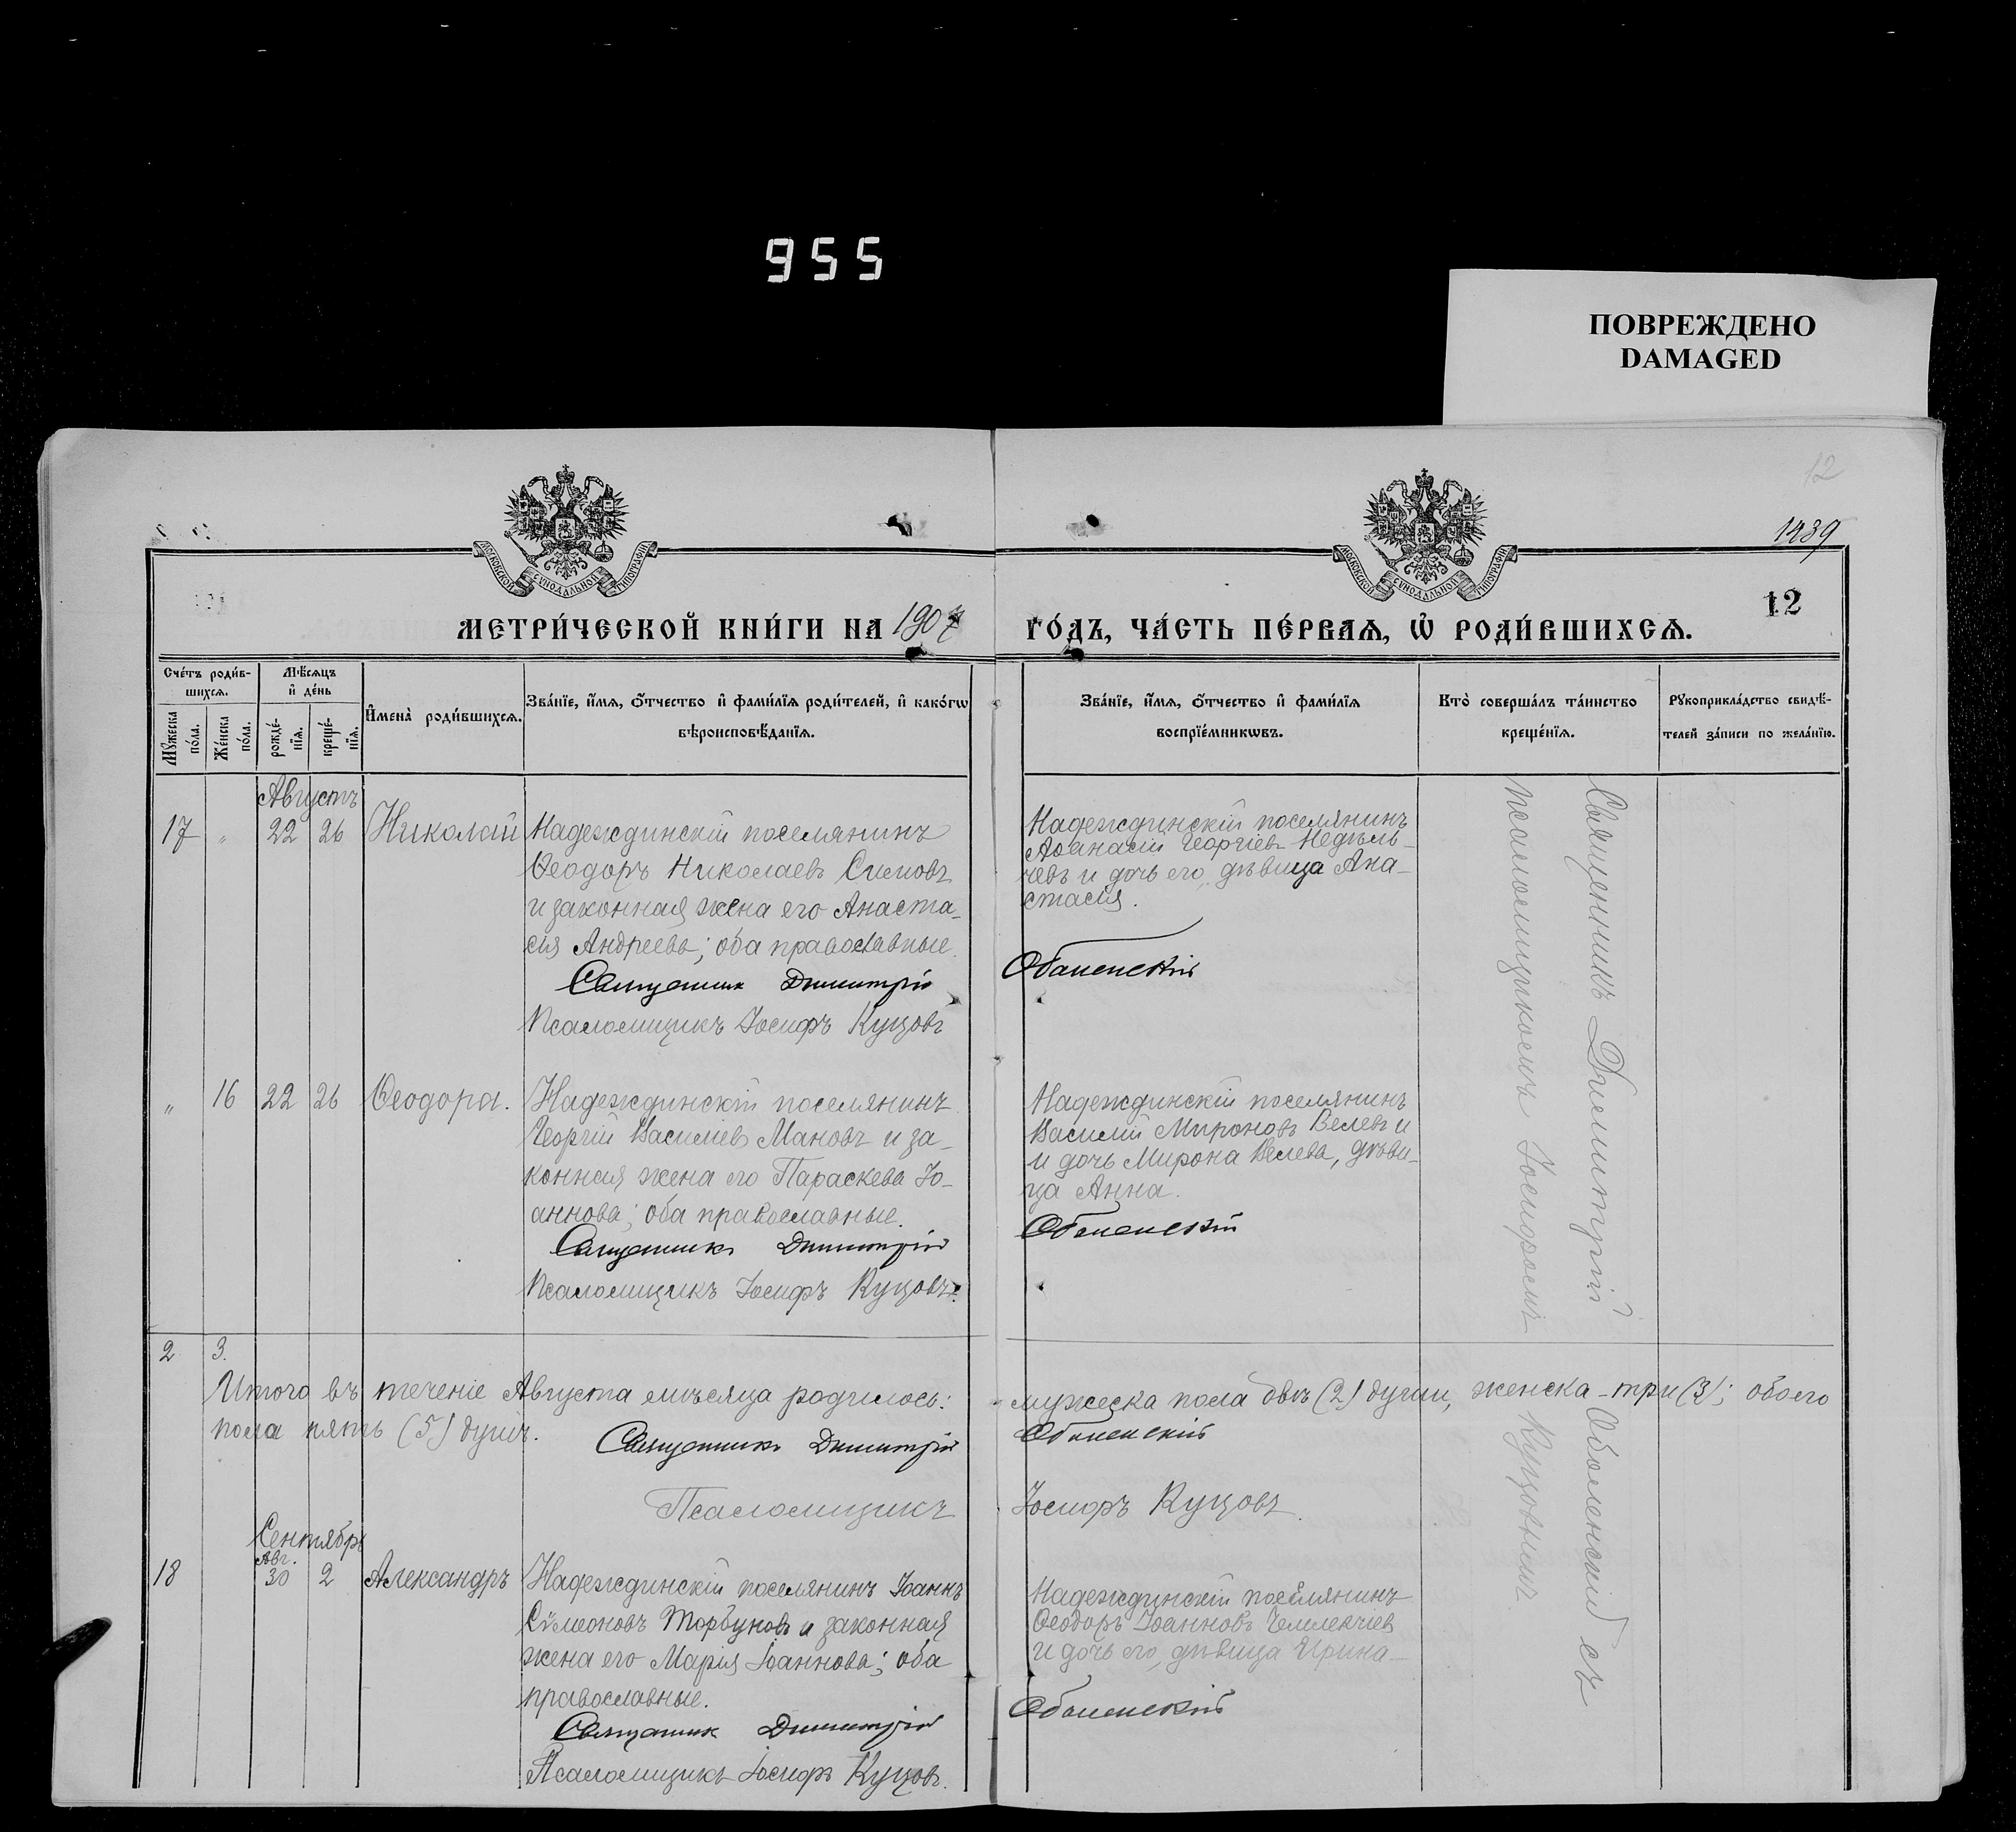 955
ПОВРЕЖДЕНО
DAMAGED
12
1439
МОСКОВСКОЙ СУНОДАЛЬНОЙ ТИПОГРАФІИ
МОСКОВСКОЙ СУНОДАЛЬНОЙ ТИПОГРАФІИ
12
МЕТРИ́ЧЕСКОЙ КНИ́ГИ НА 1907 ГО́ДЪ, ЧА́СТЬ ПЕ́РВАѦ, Ѡ҆ РОДИ́ВШИХСѦ.
Сче́тъ роди́в-
шихсѧ.
Мꙋжеска по́ла.
Же́нска по́ла.
Мѣ́сѧцъ
и҆ де́нь
рожде́-
нїѧ.
креще́-
нїѧ.
И҆мена̀ роди́вшихсѧ.
Зва́нїе, и҆́мѧ, ѻ҆́тчество и҆ фами́лїѧ роди́телей, и҆ како́гѡ
вѣроисповѣ́данїѧ.
Зва́нїе, и҆́мѧ, ѻ҆́тчество и҆ фами́лїѧ
воспрїе́мникѡвъ.
Кто̀ соверша́лъ та́инство
креще́нїѧ.
Рꙋкоприкла́дство свидѣ́-
телей за́писи по жела́нїю.
Августъ
17 " 22 26 Николай
Надеждинскій поселянинъ
Ѳеодоръ Николаевъ Симовъ
и законная жена его Анаста-
сія Андреева; оба православные.
Священникъ Димитрій Оболенскій
Псаломщикъ Іосифъ Куцовъ
Надеждинскій поселянинъ
Аѳанасій Георгіевъ Недѣль-
чевъ и дочь его, дѣвица Ана-
стасія.
Священникъ Димитрій Оболенскій съ
псаломщикомъ Іосифомъ Куцовымъ
" 16 22 26 Ѳеодора.
Надеждинскій поселянинъ
Георгій Василіевъ Мановъ и за-
конная жена его Параскева Іо-
аннова; оба православные.
Священникъ Димитрій Оболенскій
Псаломщикъ Іосифъ Куцовъ.
Надеждинскій поселянинъ
Василій Мироновъ Велевъ и
и дочь Мирона Велева, дѣви-
ца Анна.
2 3.
Итого въ теченіе Августа мѣсяца родилось: мужеска пола двѣ (2) души, женска - три (3); обоего
пола пять (5) душъ.
Священникъ Димитрій Оболенскій
Псаломщикъ Іосифъ Куцовъ.
Сентябрь
Авг.
18 30 2 Александръ
Надеждинскій поселянинъ Іоаннъ
Сѵмеоновъ Торбуновъ и законная
жена его Марія Іоаннова; оба
православные.
Священникъ Димитрій Оболенскій
Псаломщикъ Іосифъ Куцовъ.
Надеждинскій поселянинъ
Ѳеодоръ Іоанновъ Чемлекчіевъ
и дочь его, дѣвица Ирина